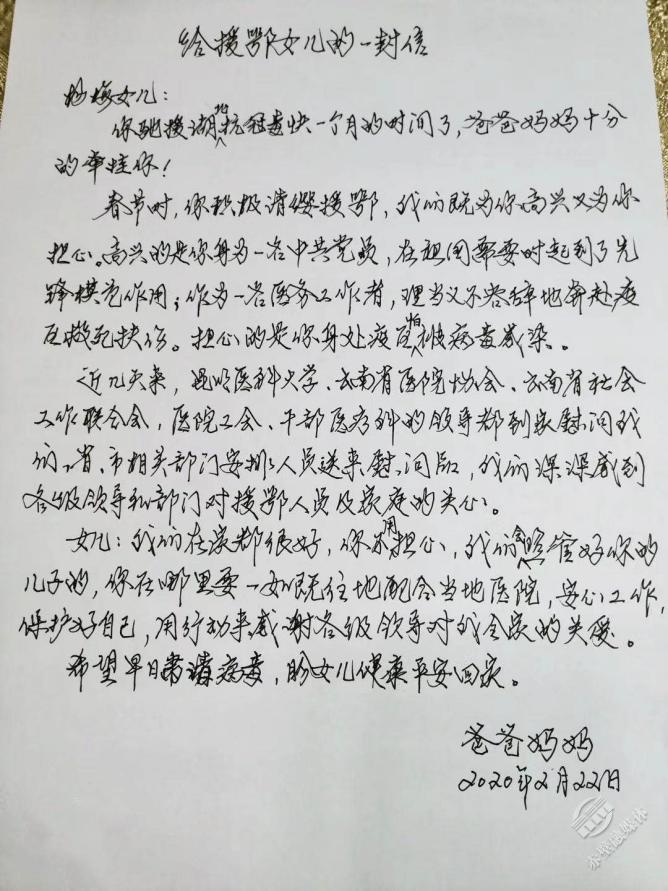 给援鄂女儿的一封信
杨梅女儿：
你驰援湖北抗冠毒快一个月的时间了，爸爸妈妈十分
的牵挂你！
春节时，你积极请缨援鄂，我们既为你高兴又为你
担心。高兴的是你身为一名中共党员，在祖国需要时起到了先
锋模范作用；作为一名医务工作者，理当义不容辞地奔赴疫
区救死扶伤。担心的是你身处疫区怕被病毒感染。
近几天来，昆明医科大学、云南省医院协会、云南省社会
工作联合会，医院工会、干部医疗科的领导都到家慰问我
们，省、市相关部门安排人员送来慰问品，我们深深感到
各级领导和部门对援鄂人员及家庭的关心。
女儿：我们在家都很好，你不用担心，我们会照管好你的
儿子的，你在哪里要一如既往地配合当地医院，安心工作，
保护好自己，用行动来感谢各级领导对我全家的关爱。
希望早日肃清病毒，盼女儿健康平安回家。
爸爸妈妈
2020年2月22日